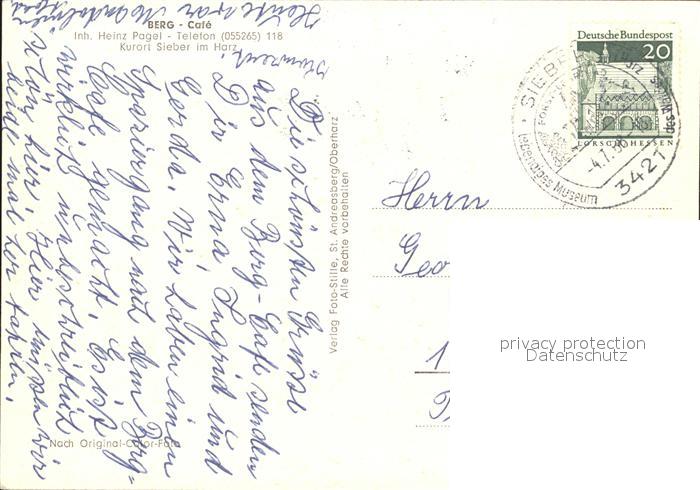 BERG - Café
Inh. Heinz Pagel - Telefon (055265) 118
Kurort Sieber im Harz
Die schönsten Grüsse
aus dem Berg-Café senden
Dir Erna Ingrid und
Gerda. Wir haben einen
Spaziergang nach dem Berg-
Cafe gemacht. Es ist
wirklich unbeschreiblich
schön hier. Hier müssen wir
mal her fahren.
Heute war
Nach Original-Color-Foto
Verlag Foto-Stille, St. Andreasberg/Oberharz
Alle Rechte vorbehalten
Deutsche Bundespost
20
LORSCH/HESSEN
SIEBER
lebendiges Museum
3421
Herrn
Geo
1
privacy protection
Datenschutz